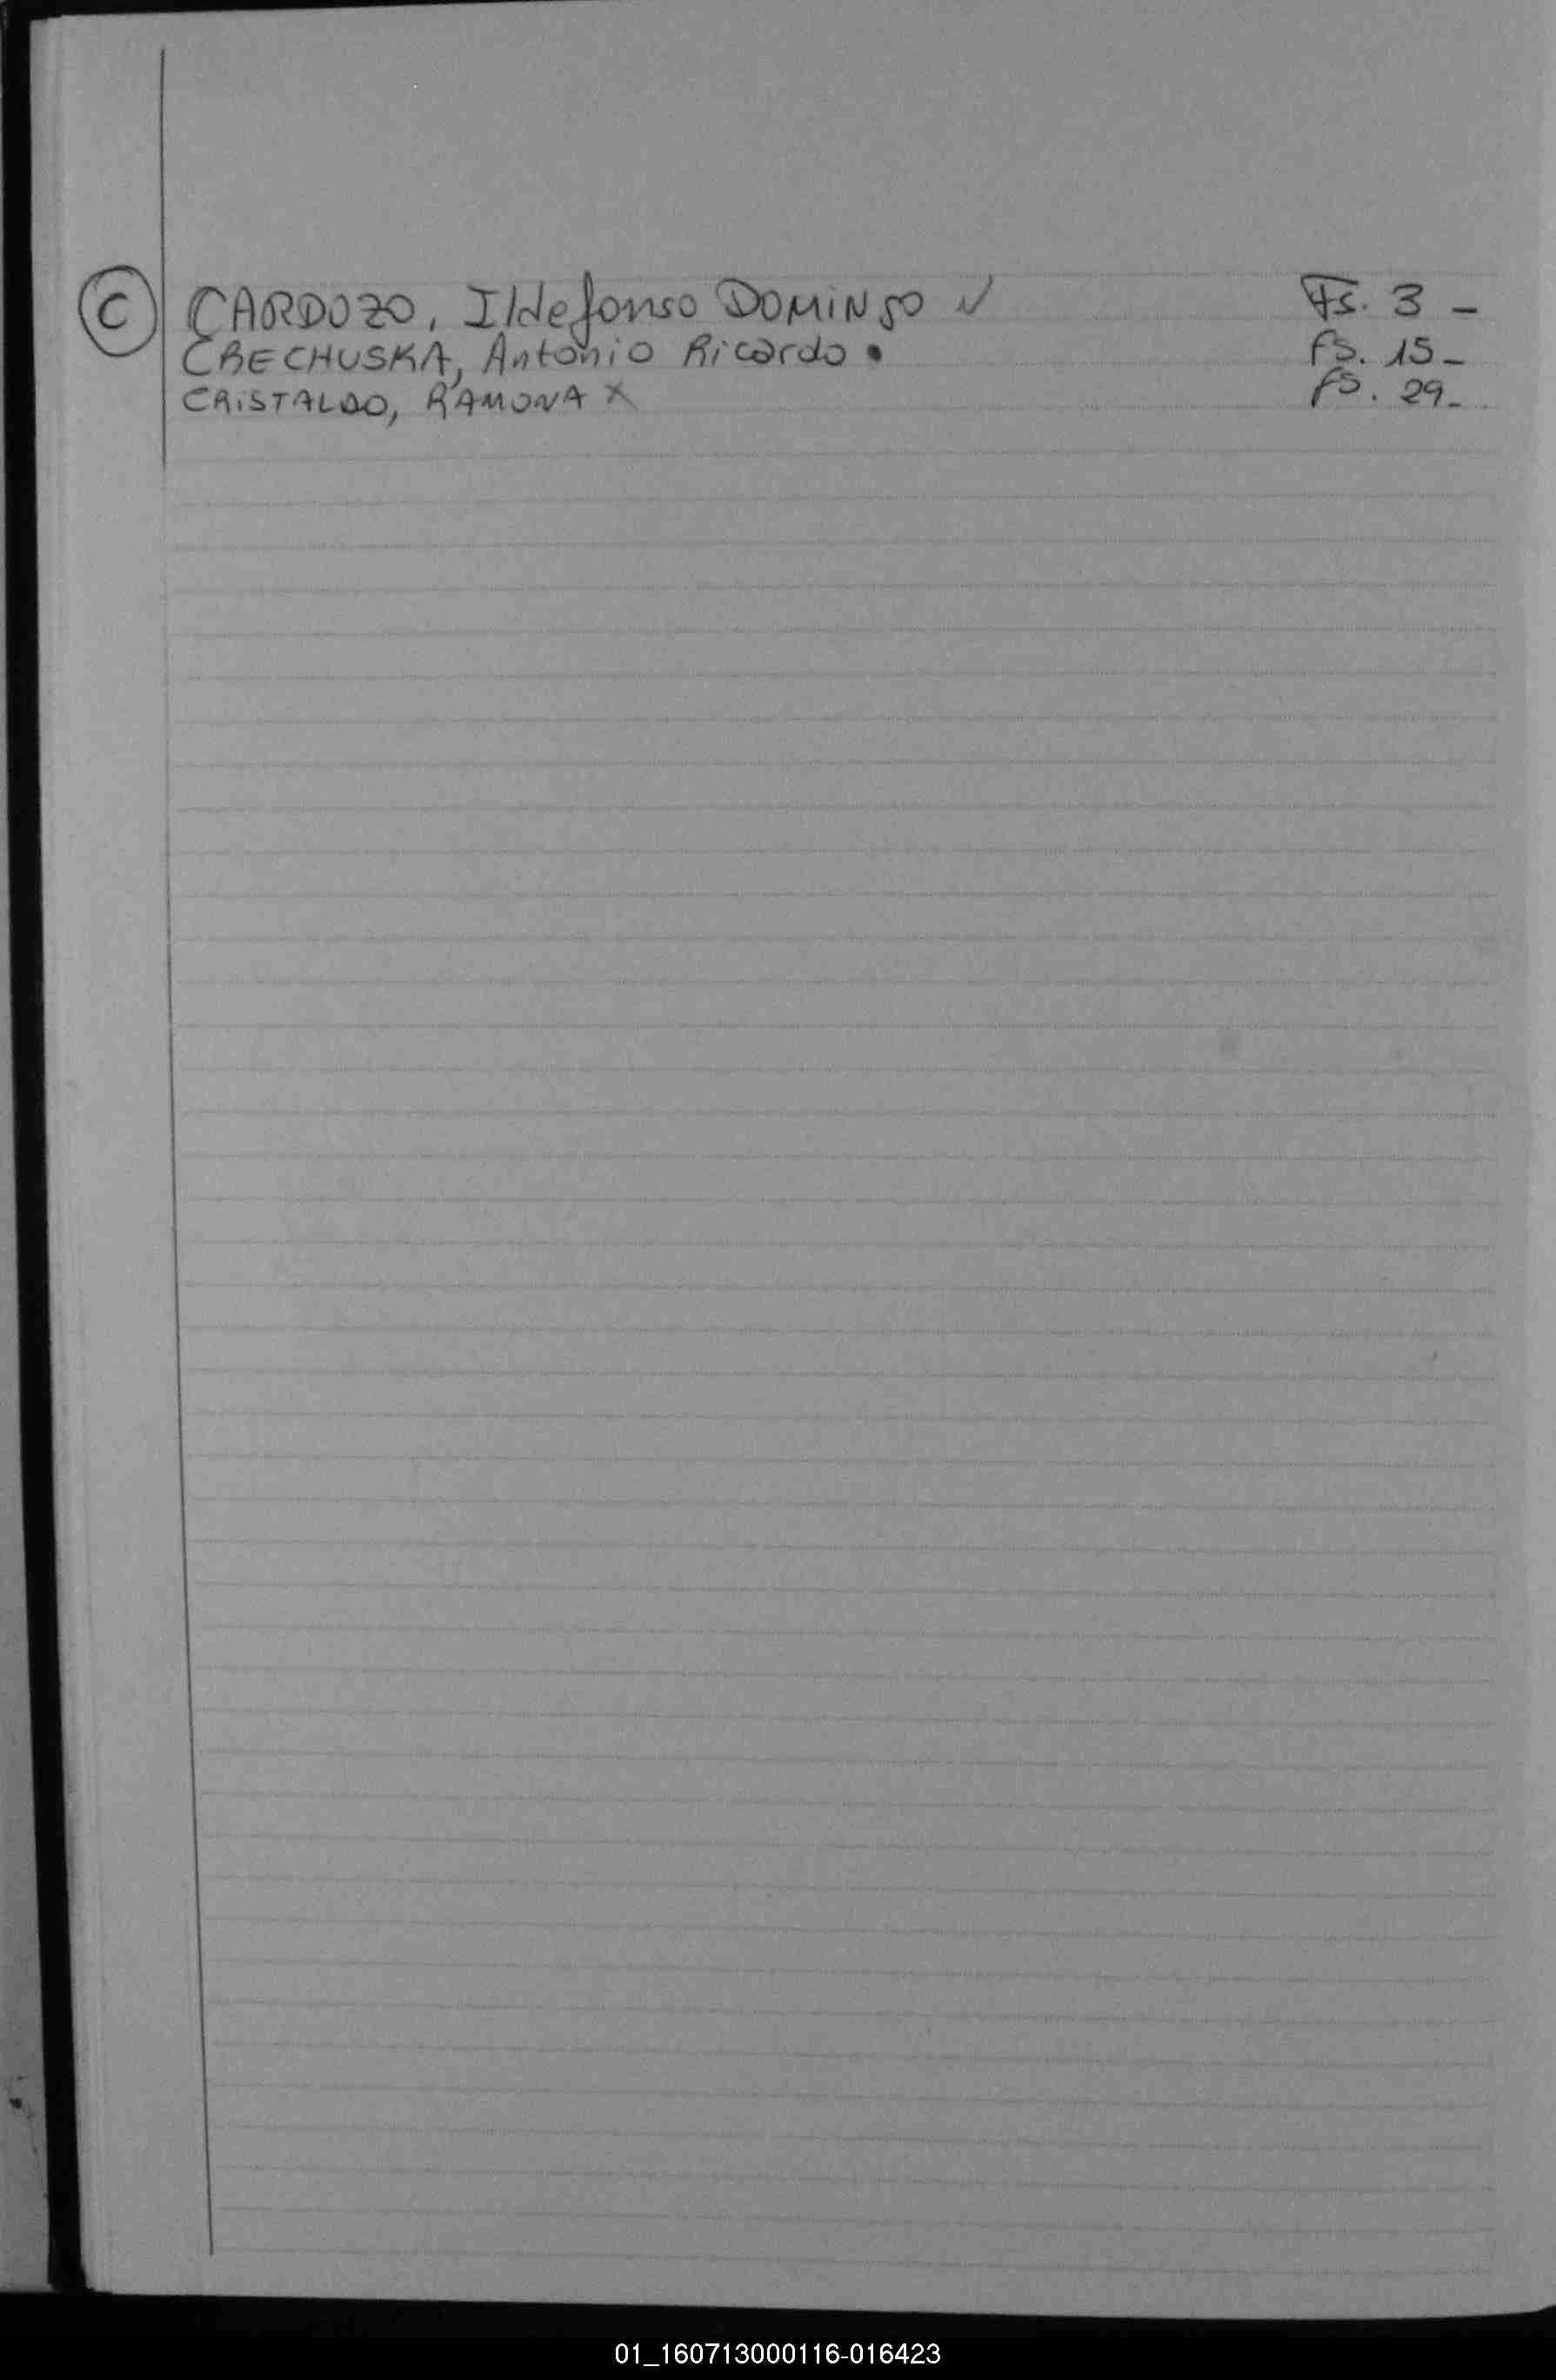 C CARDOZO, Ildefonso DOMINGO ✓ Fs. 3 -
CRECHUSKA, Antonio Ricardo • fs. 15-
CRISTALDO, RAMONA X fs. 29-
01_160713000116-016423